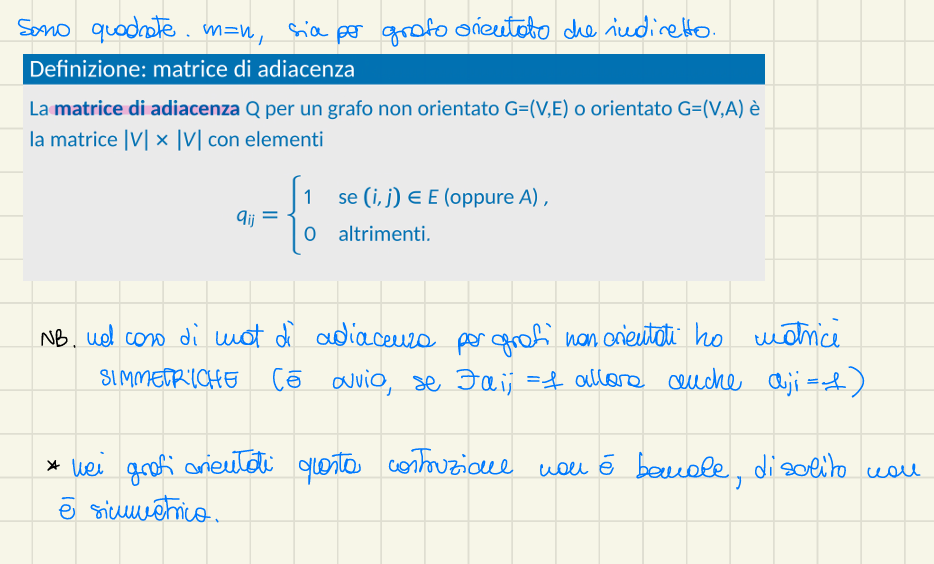 Sono quadrate. m=n, sia per grafo orientato che indiretto.
Definizione: matrice di adiacenza
La matrice di adiacenza Q per un grafo non orientato G=(V,E) o orientato G=(V,A) è
la matrice |V| × |V| con elementi
1 se (i, j) ∈ E (oppure A) ,
qij =
0 altrimenti.
NB. nel caso di mat di adiacenza per grafi non orientati ho matrici
SIMMETRICHE (è ovvio, se ∃ aij =1 allora anche aji =1)
* nei grafi orientati questa costruzione non è banale, di solito non
è simmetrica.